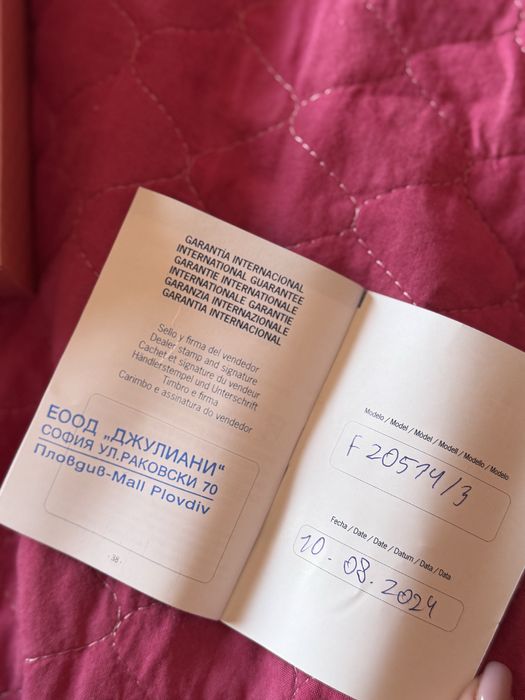 GARANTÍA INTERNACIONAL
INTERNATIONAL GUARANTEE
GARANTIE INTERNATIONALE
INTERNATIONALE GARANTIE
GARANZIA INTERNAZIONALE
GARANTIA INTERNACIONAL
Sello y firma del vendedor
Dealer stamp and signature
Cachet et signature du vendeur
Händlerstempel und Unterschrift
Timbro e firma
Carimbo e assinatura do vendedor
ЕООД „ДЖУЛИАНИ“
СОФИЯ УЛ.РАКОВСКИ 70
Пловдив-Mall Plovdiv
- 38 -
Modelo / Model / Mòdel / Modell / Modello / Modelo
F 20514/3
Fecha / Date / Date / Datum / Data / Data
10.08.2024